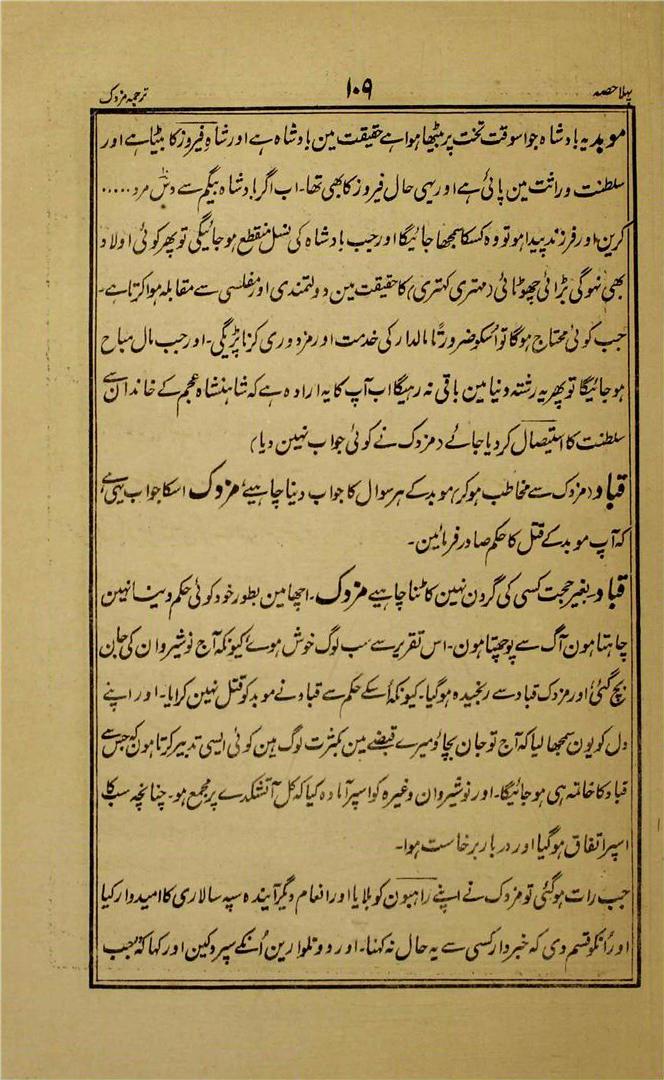 پہلا حصہ ۱۰۹ ترجمہ مزدک
موبد یہ بادشاہ جو اسوقت تخت پر بیٹھا ہوا ہے حقیقت مین بادشاہ ہے اور شاہ فیروز کا بیٹا ہے اور
سلطنت وراثت مین پائی ہے اور یہی حال فیروز کا بھی تھا۔ اب اگر بادشاہ بیگم سے دس مرد .....
کرین اور فرزند پیدا ہو تو وہ کسکا سمجھا جائیگا اور جب بادشاہ کی نسل منقطع ہو جائیگی تو پھر کوئی اولاد
بھی نہوگی بڑائی چھوٹائی (مہتری کہتری) کا حقیقت مین دولتمندی اور مفلسی سے مقابلہ ہوا کرتا ہے۔
جب کوئی محتاج ہوگا تو اُسکو ضرورتًا مالدار کی خدمت اور مزدوری کرنا پڑیگی۔ اور جب مال مباح
ہو جائیگا تو پھر یہ رشتہ دنیا مین باقی نہ رہیگا اب آپ کا یہ ارادہ ہے کہ شاہنشاہ عجم کے خاندان سے
سلطنت کا استیصال کر دیا جائے (مزدک نے کوئی جواب نہین دیا)
قباد (مزدک سے مخاطب ہو کر) موبد کے ہر سوال کا جواب دینا چاہیے مزدک اسکا جواب یہی ہے
کہ آپ موبد کے قتل کا حکم صادر فرمائین۔
قباد بغیر حجت کسی کی گردن نہین کاٹنا چاہیے مزدک۔ اچھا مین بطور خود کوئی حکم دینا نہین
چاہتا ہون آگ سے پوچھتا ہون۔ اس تقریر سے سب لوگ خوش ہوے کیونکہ آج نوشیروان کی جان
بچ گئی اور مزدک قباد سے رنجیدہ ہو گیا۔ کیونکہ اُسکے حکم سے قباد نے موبد کو قتل نہین کرایا۔ اور اپنے
دل کو یون سمجھا لیا کہ آج تو جان بچاؤ میرے قبضے مین بکثرت لوگ ہین کوئی ایسی تدبیر کرتا ہون کہ جس سے
قباد کا خاتمہ ہی ہو جائیگا۔ اور نوشیروان وغیرہ کو اسپر آمادہ کیا کہ کل آتشکدے پر مجمع ہو۔ چنانچہ سب کا
اسپر اتفاق ہو گیا اور دربار برخاست ہوا۔
جب رات ہو گئی تو مزدک نے اپنے راہبون کو بلایا اور انعام دیکر آیندہ سپہ سالاری کا امیدوار کیا
اور اُنکو قسم دی کہ خبردار کسی سے یہ حال نہ کہنا۔ اور دو تلوارین اُنکے سپرد کین اور کہا کہ "جب